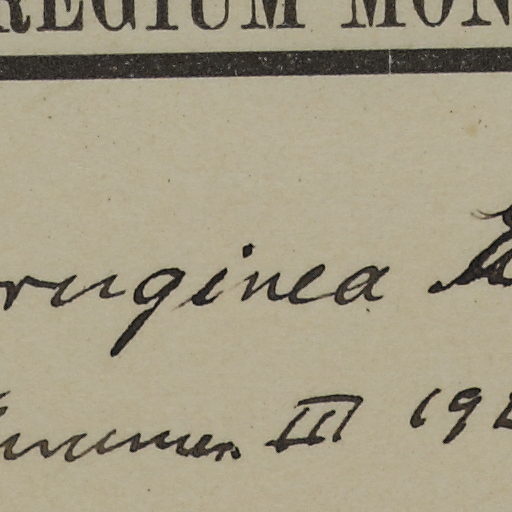 REGIUM MON
ruginea
III 192